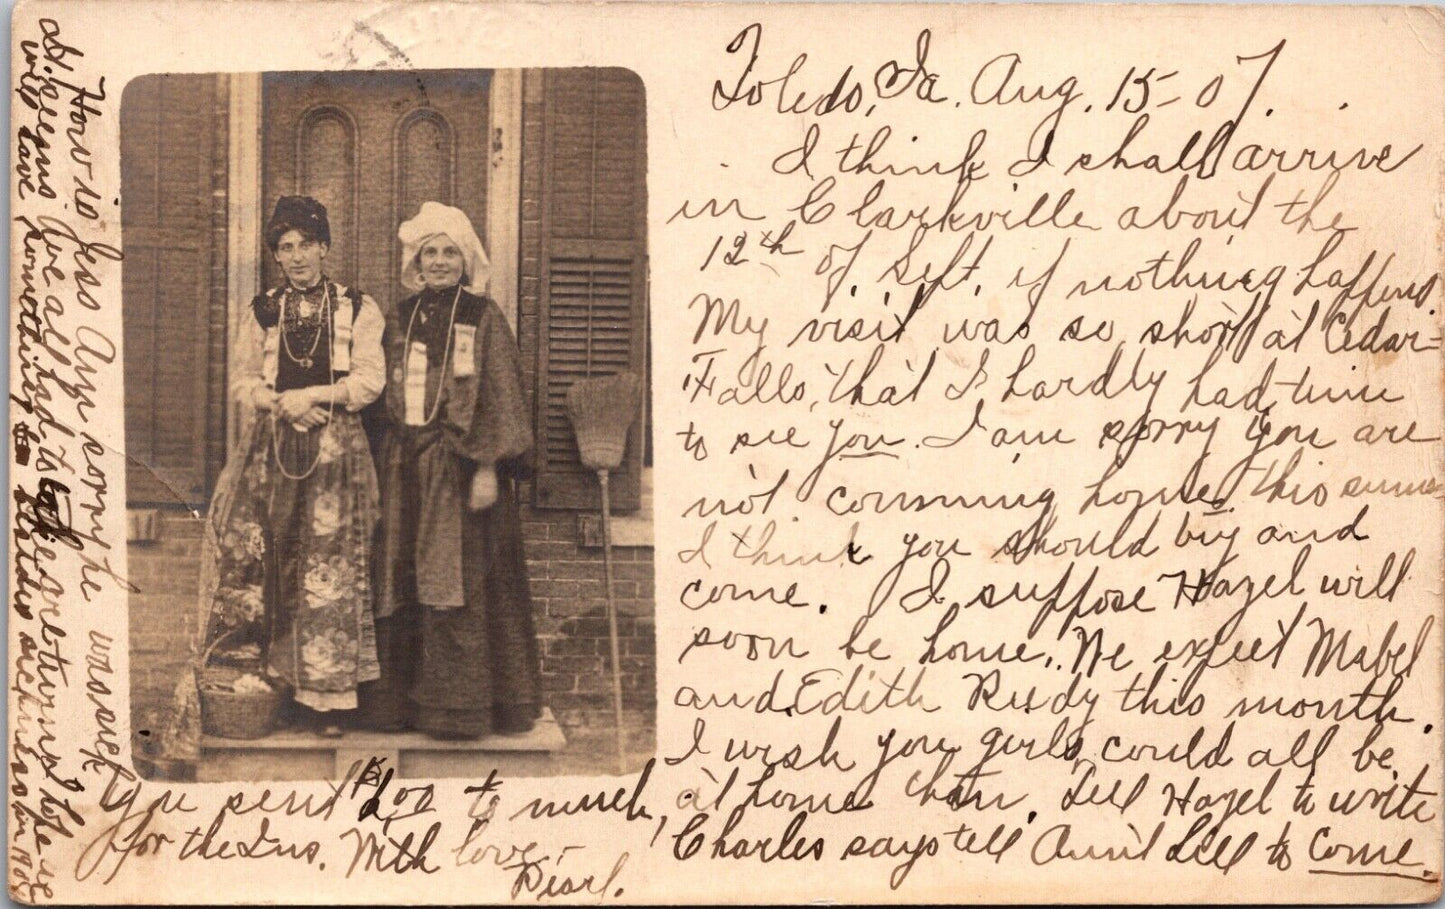 Toledo, Ia. Aug. 15-07.
I think I shall arrive
in Clarkville about the
12th of Sept. if nothing happens
My visit was so short at Cedar-
Falls, that I hardly had time
to see you. I am sorry you are
not comming home this summer
I think you should try and
come. I suppose Hazel will
soon be home. We expect Mabel
and Edith Rudy this month.
I wish you girls could all be
at home then. Tell Hazel to write
Charles says tell Aunt Dell to come.
You sent $2.00 to much,
for the Ins. With love-
Pearl.
How is Jess Am sorry he was sick
It seems we all had to take a turn. I hope we
will have something besides sickness in 1908